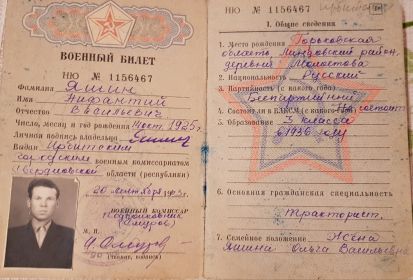 ВОЕННЫЙ БИЛЕТ
НЮ № 1156467
Фамилия Яшин
Имя Нифантий
Отчество Васильевич
Число, месяц и год рождения 1925 г.
Личная подпись владельца
Выдан Ирбитским
городским военным комиссариатом
Свердловской области (республики)
20 сентября
ВОЕННЫЙ КОМИССАР
Подполковник
М. П.
НЮ № 1156467
I. Общие сведения
1. Место рождения Горьковская
область, район,
деревня
2. Национальность Русский
3. Партийность (с какого года)
Беспартийный
4. Состоит ли в ВЛКСМ (с какого года) Не состоит
5. Образование 3 класса
в 1936 году
6. Основная гражданская специальность
тракторист
7. Семейное положение Жена
Яшина Ольга Васильевна